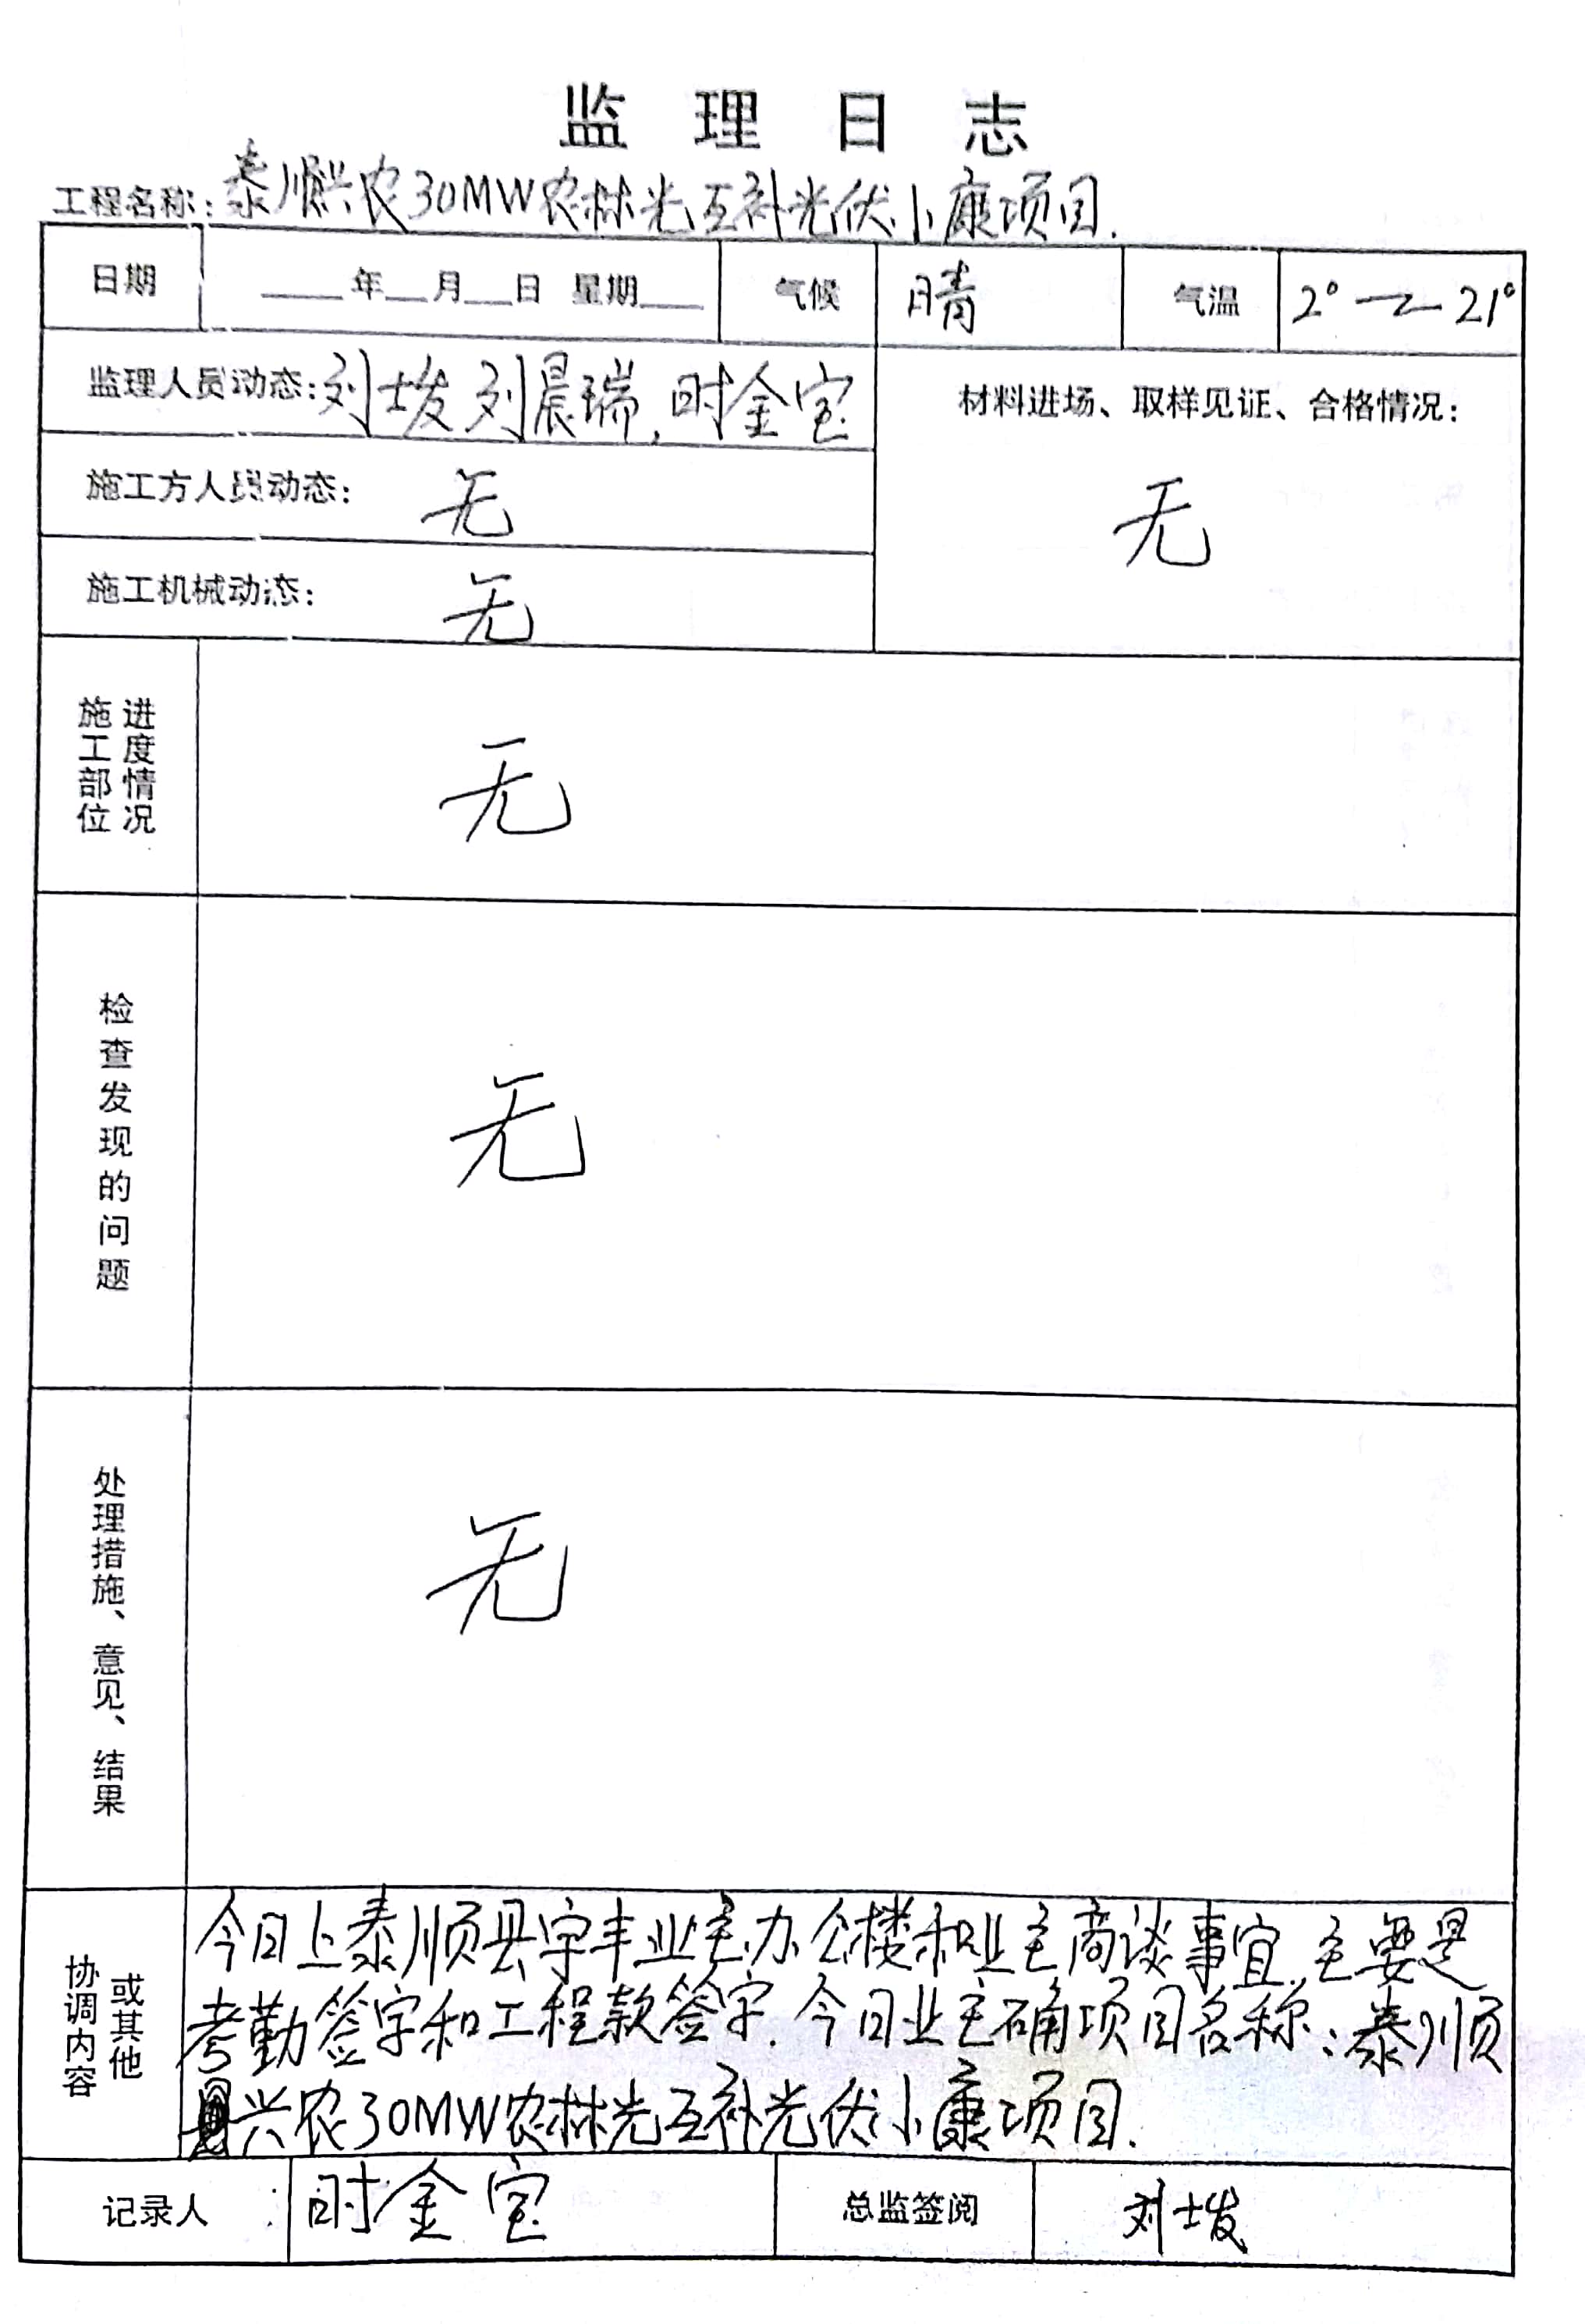 监理日志
工程名称：泰顺兴农30MW农林光互补光伏小康项目.
日期 ____年__月__日 星期___ 气候 晴 气温 2°~21°
监理人员动态：刘 刘晨瑞，时金宝
材料进场、取样见证、合格情况：
无
施工方人员动态： 无
施工机械动态： 无
施工部位 进度情况
无
检查发现的问题
无
处理措施、意见、结果
无
协调内容 或其他
今日上泰顺县宇丰业主办公楼和业主商谈事宜.主要是
考勤签字和工程款签字.今日业主确项目名称：泰顺
兴农30MW农林光互补光伏小康项目.
记录人： 时金宝 总监签阅 刘